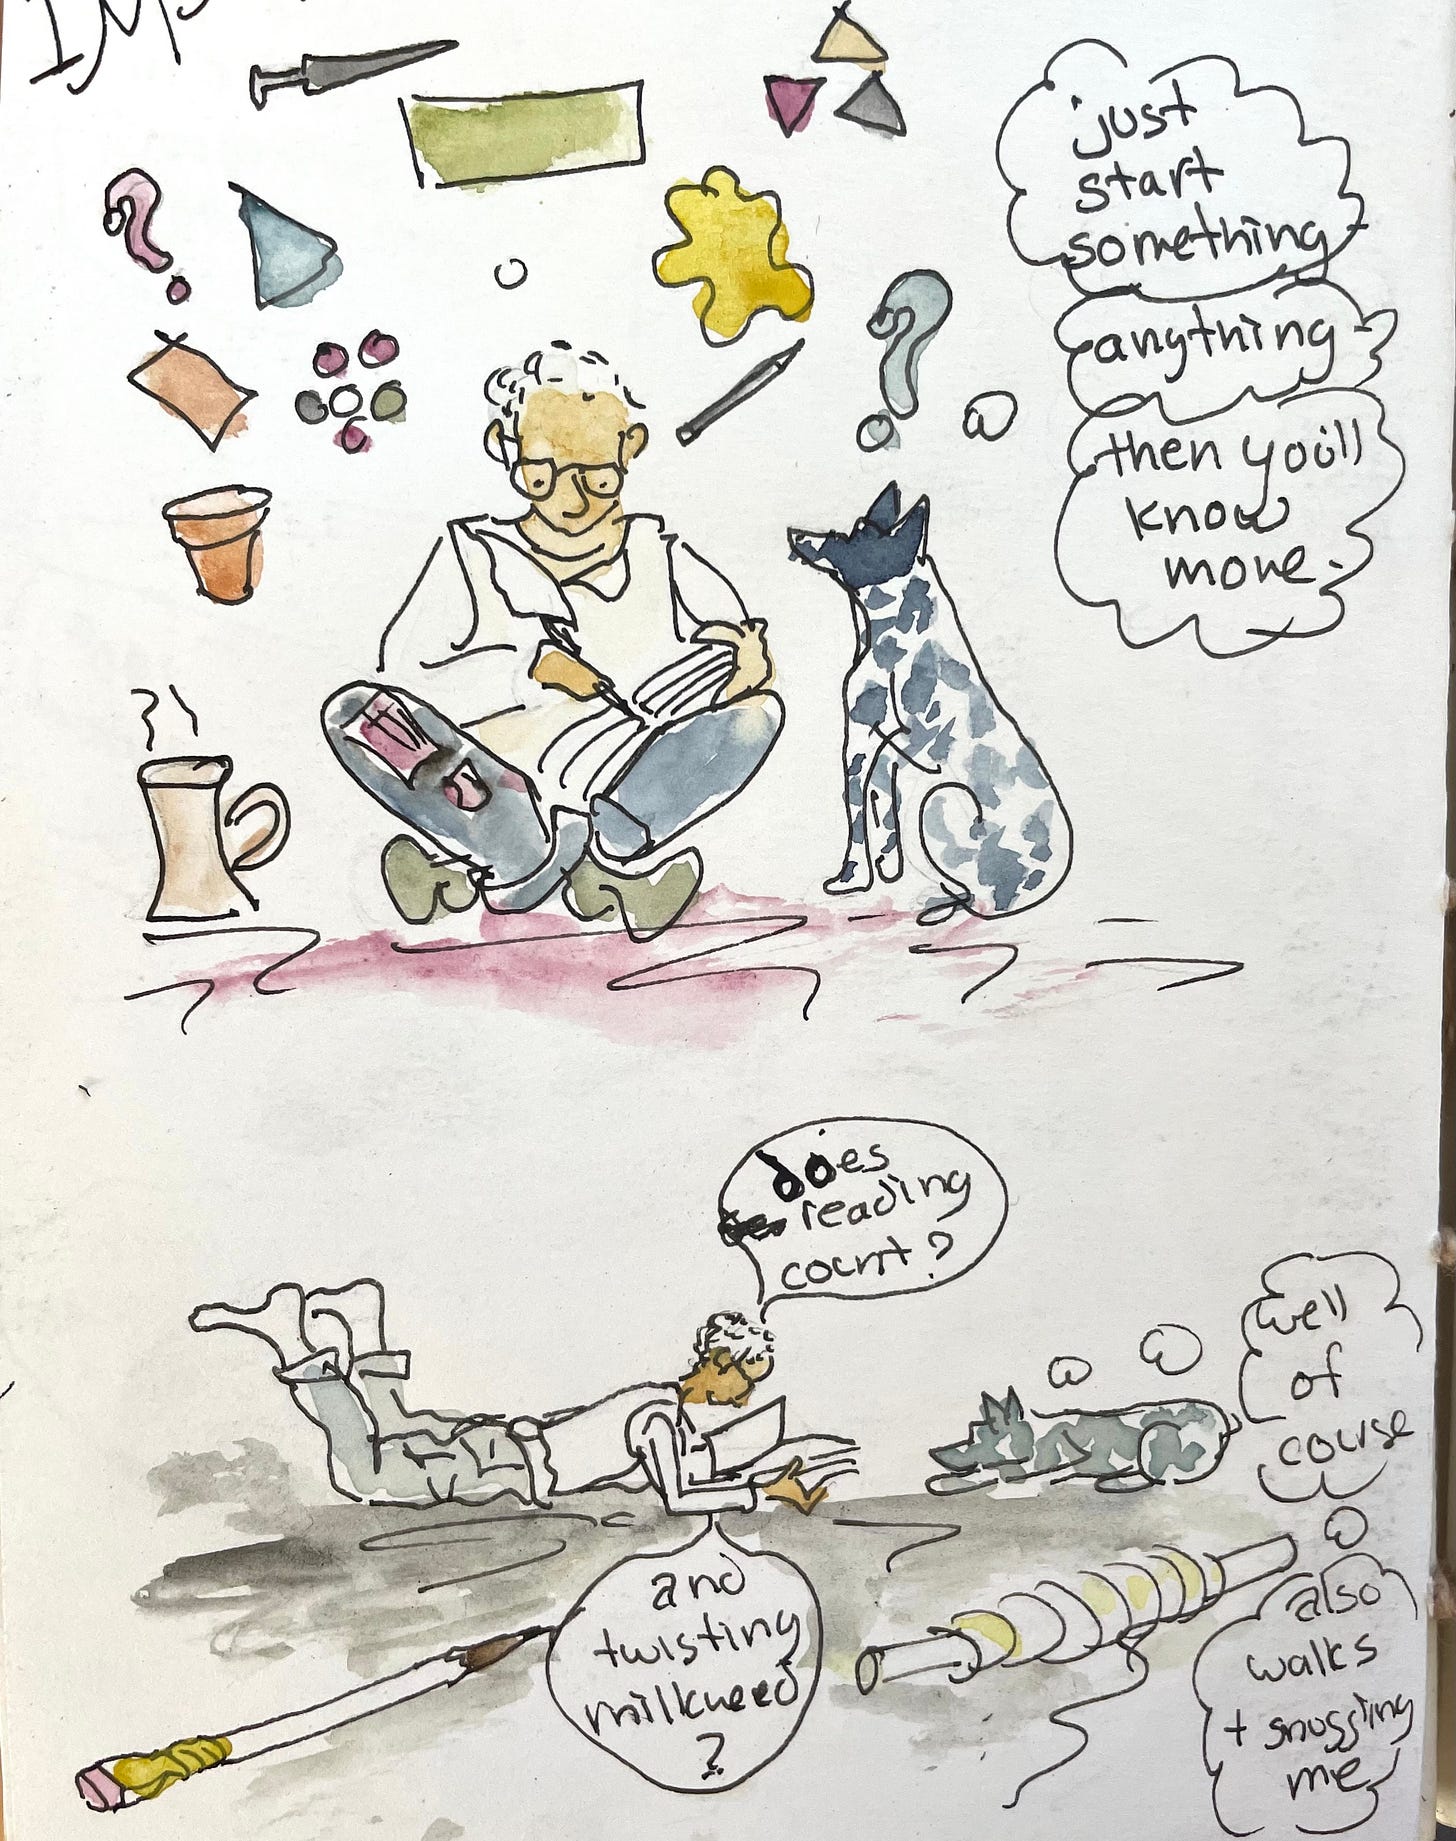 just
start
something
anything
then you'll
know
more.
does
reading
count?
well
of
course
and
twisting
milkweed
?
also
walks
+ snuggling
me